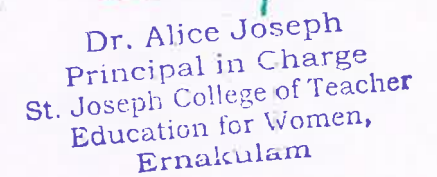 Dr. Alice Joseph
Principal in Charge
St. Joseph College of Teacher
Education for Women,
Ernakulam